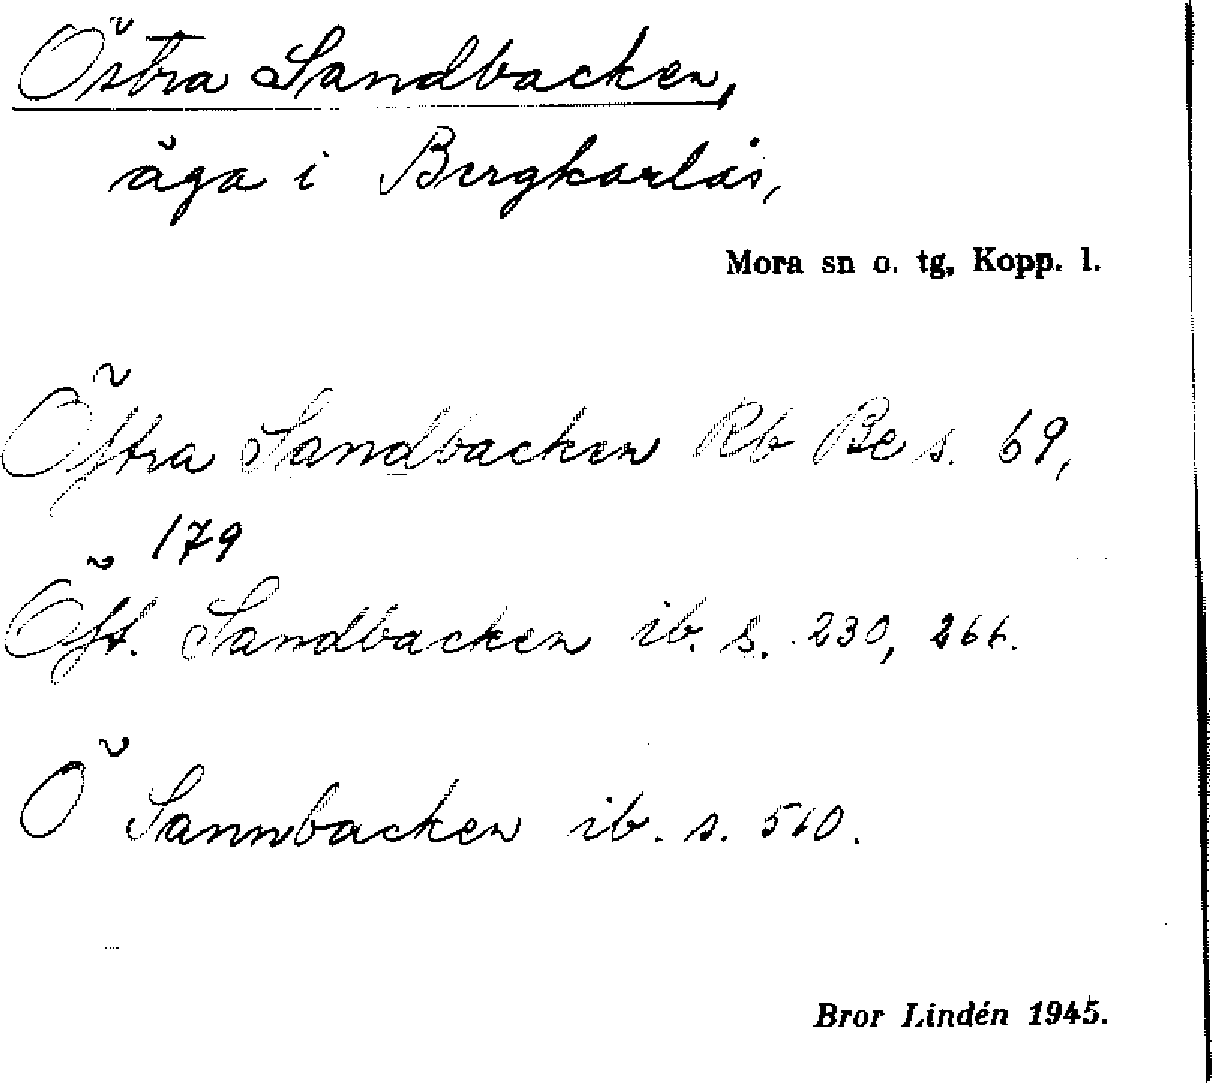 Östra Sandbacken,
äga i Bergkarlås,
Mora sn o. tg, Kopp. l.
Östra Sandbacken Rb Be s. 69,
179
Öst. Sandbacken ib. s. 230, 266.
Ö Sannbacken ib. s. 510.
Bror Lindén 1945.